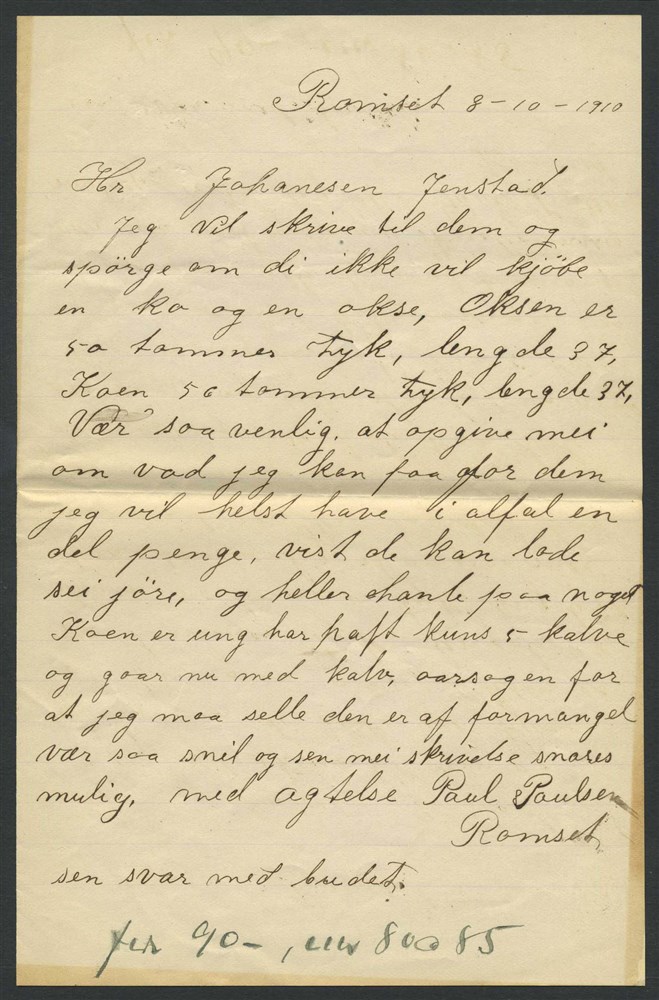 Romset 8-10-1910
Hr Johanesen Jenstad.
Jeg vil skrive til dem og
spörge om di ikke vil kjöbe
en ko og en okse, Oksen er
50 tommer tyk, lengde 37,
Koen 50 tommer tyk, lengde 37,
Vær saa venlig. at opgive mei
om vad jeg kan faa for dem
jeg vil helst have i alfal en
del penge, vist de kan lade
sei jöre, og heller hanle paa noget
Koen er ung har haft kuns 5 kalve
og gaar nu med kalv, aarsagen for
at jeg maa selle den er af formangel
vær saa snil og sen mei skrivelse snares
mulig, med agtelse Paul Paulsen
Romset,
sen svar med budet.
90-, 80 a 85